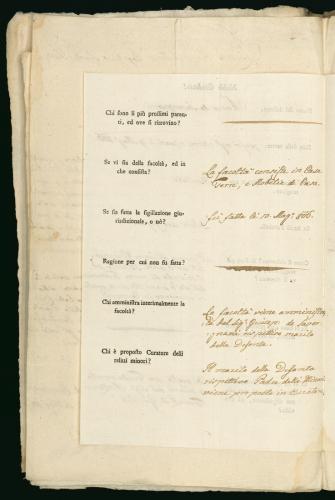 Chi sono li più prossimi paren-
ti, ed ove si ritrovino?
Se vi sia della facoltà, ed in
che consista?
La facoltà consista in Case
Terre, e Mobilie di Casa.
Se sia fatta la sigilazione giu-
risdizionale, o nò?
fù fatta li 10. Magº
Ragione per cui non fu fatta?
Chi amministra interimalmente la
facoltà?
La facoltà viene amministra
ta dal Sigʳ
rispettivo marito
della Defonta.
Chi è proposto Curatore delli
relitti minori?
Il marito della Defonta
rispettivo Padre delli Minori
viene proposto in Curatore,